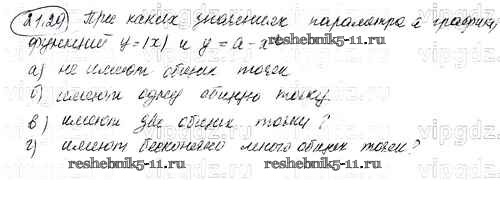 21.20) При каких значениях параметра a графики
функций y=|x| и y = a - x²
а) не имеют общих точек
б) имеют одну общую точку
в) имеют две общих точки?
г) имеют бесконечно много общих точек?
reshebnik5-11.ru
reshebnik5-11.ru
vipgdz.
vipgdz.
vipgdz.